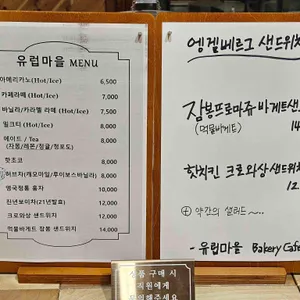 유럽마을 MENU
아메리카노 (Hot/Ice) 6,500
카페라떼 (Hot/Ice) 7,000
바닐라/카라멜 라떼 (Hot/Ice) 7,500
밀크티 (Hot/Ice) 8,000
에이드 / Tea 8,000
핫초코 8,000
허브차(캐모마일/루이보스바닐라) 8,000
영국정통 홍차 10,000
진년보이차(21년발효) 10,000
크로와상 샌드위치 12,000
먹물바게트 잠봉 샌드위치 14,000
엥겔베르그 샌드위치
잠봉프로마쥬 바게트샌
(먹물바게트) 14
핫치킨 크로와상 샌드위치
12
⊕ 약간의 샐러드 ~
- 유럽마을 Bakery Cafe
상품 구매 시
직원에게